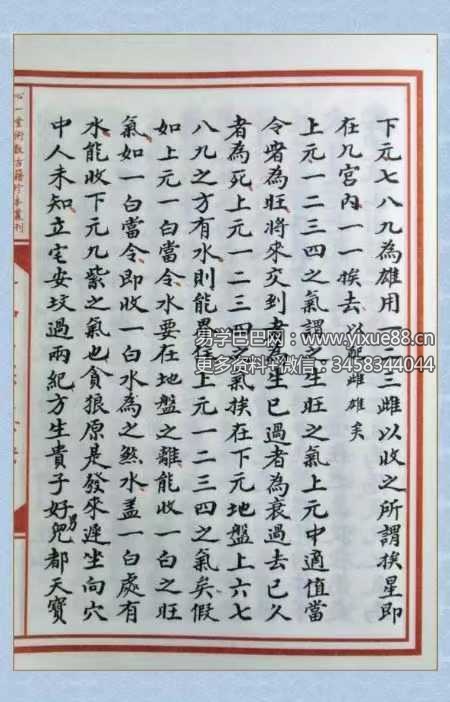 下元七八九為雄用一二三雌以收之所謂挨星即
在九宮內一一挨去以配雌雄矣
上元一二三四之氣謂之生旺之氣上元中適值當
令者為旺將來交到者為生已過者為衰過去已久
者為死上元一二三四之氣挨在下元地盤上六七
八九之方有水則能住上元一二三四之氣矣假
如上元一白當令水要在地盤之離能收一白之旺
氣如一白當令即收一白水為之煞水蓋一白處有
水能收下元九紫之氣也貪狼原是發來遲坐向穴
中人未知立宅安墳過兩紀方生貴子好兒都天寶
心一堂術數古籍珍本叢刊
易学巴巴网：www.yixue88.cn
更多资料+微信：3458344044